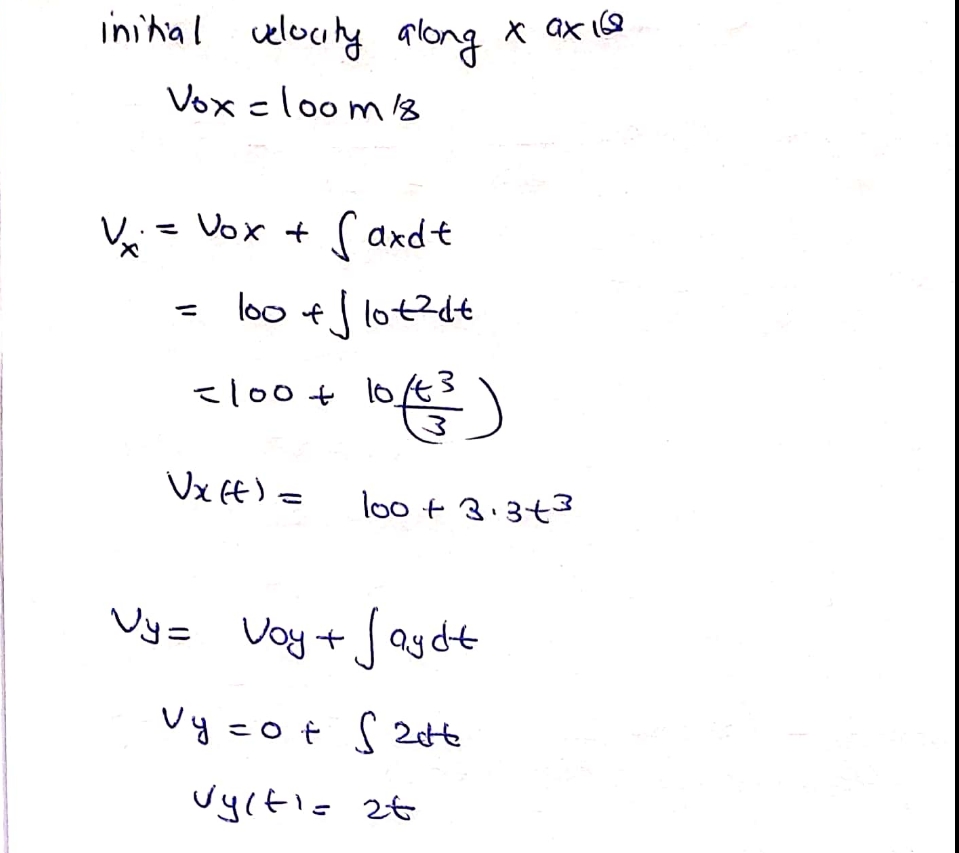 initial velocity along x axis
Vox = 100 m/s
Vx = Vox + ∫ axdt
= 100 + ∫ 10t2dt
= 100 + 10 (t3/3)
Vx(t) = 100 + 3.3t3
Vy = Voy + ∫ aydt
Vy = 0 + ∫ 2dt
Vy(t) = 2t